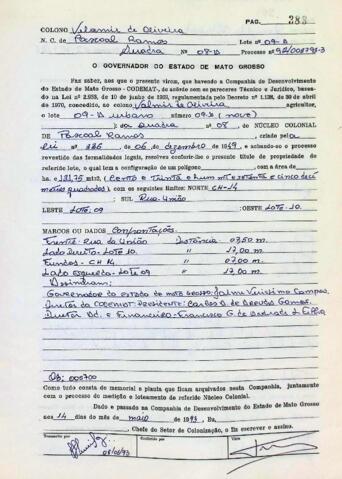 PAG. 383
COLONO Vilamir de Oliveira
N. C. de Pascoal Ramos Lote nº 09-B
Quadra Nº 08-B Processo nº
O GOVERNADOR DO ESTADO DE MATO GROSSO
Faz saber, aos que o presente virem, que havendo a Companhia de Desenvolvimento
do Estado de Mato Grosso - CODEMAT, de acordo com os pareceres Técnico e Jurídico, basea-
do na Lei nº 2.933, de 10 de junho de 1969, regulamentada pelo Decreto nº 1.138, de 30 de abril
de 1970, concedido, ao colono Valmir de Oliveira agricultor,
o lote 09-B urbano número 09-B (nove)
da Quadra nº 08, DO NÚCLEO COLONIAL
DE Pascoal Ramos, criado pela
lei nº 336 de 06 de dezembro de 1949, e achando-se o processo
revestido das formalidades legais, resolveu conferir-lhe o presente título de propriedade do
referido lote, o qual tem a configuração de um polígono com a área de
ha 131,75 mts2, (cento e trinta e hum mts e setenta e cinco deci
metros quadrados) com os seguintes limites: NORTE CH-14
; SUL Rua União
LESTE Lote. 09 ; OESTE Lote-10.
MARCOS OU DADOS Confrontações.
Frente - Rua da União Distância 07,50 m.
Lado Direito - Lote 10. " 17,00 m.
Fundos - CH 14 " 07,00 m.
Lado esquerdo - Lote 09 " 17,00 m.
Assinaram:
Governador do estado de mato grosso Jaime Verissimo Campos.
Diretor da CODEMAT: PRESIDENTE: Carlos de Gomes.
Diretor Ad. e Financeiro - Francisco G. de Andrade L. Filho
000700
Como tudo consta do memorial e planta que ficam arquivados nesta Companhia, juntamente
com o processo de medição e loteamento do referido Núcleo Colonial.
Dado e passado na Companhia de Desenvolvimento do Estado de Mato Grosso
aos 14 dias do mês de maio de 1993, Eu,
, Chefe do Setor de Colonização, o fiz escrever e assino.
Transcrito por Conferido por Visto